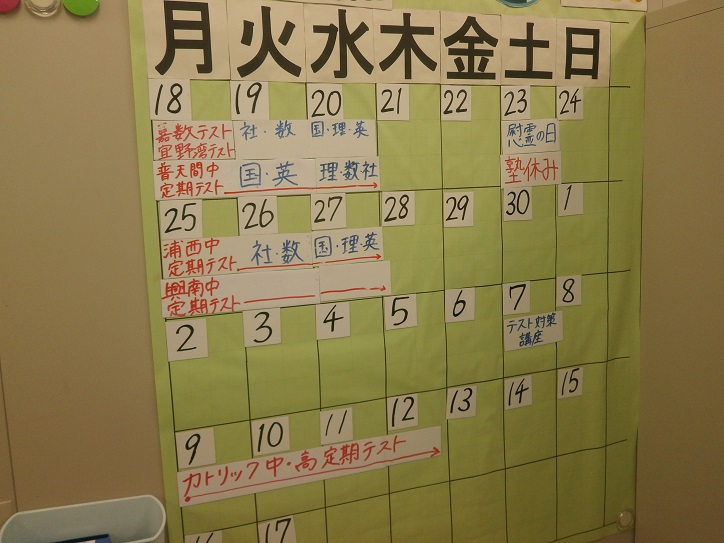 月 火 水 木 金 土 日
18 19 20 21 22 23 24
嘉数テスト 社・数 国・理・英 慰霊の日
宜野湾テスト
普天間中 国・英 理数社 塾休み
定期テスト
25 26 27 28 29 30 1
浦西中 社・数 国・理・英
定期テスト
興南中
定期テスト
2 3 4 5 6 7 8
テスト対策
講座
9 10 11 12 13 14 15
カトリック中・高定期テスト
16 17